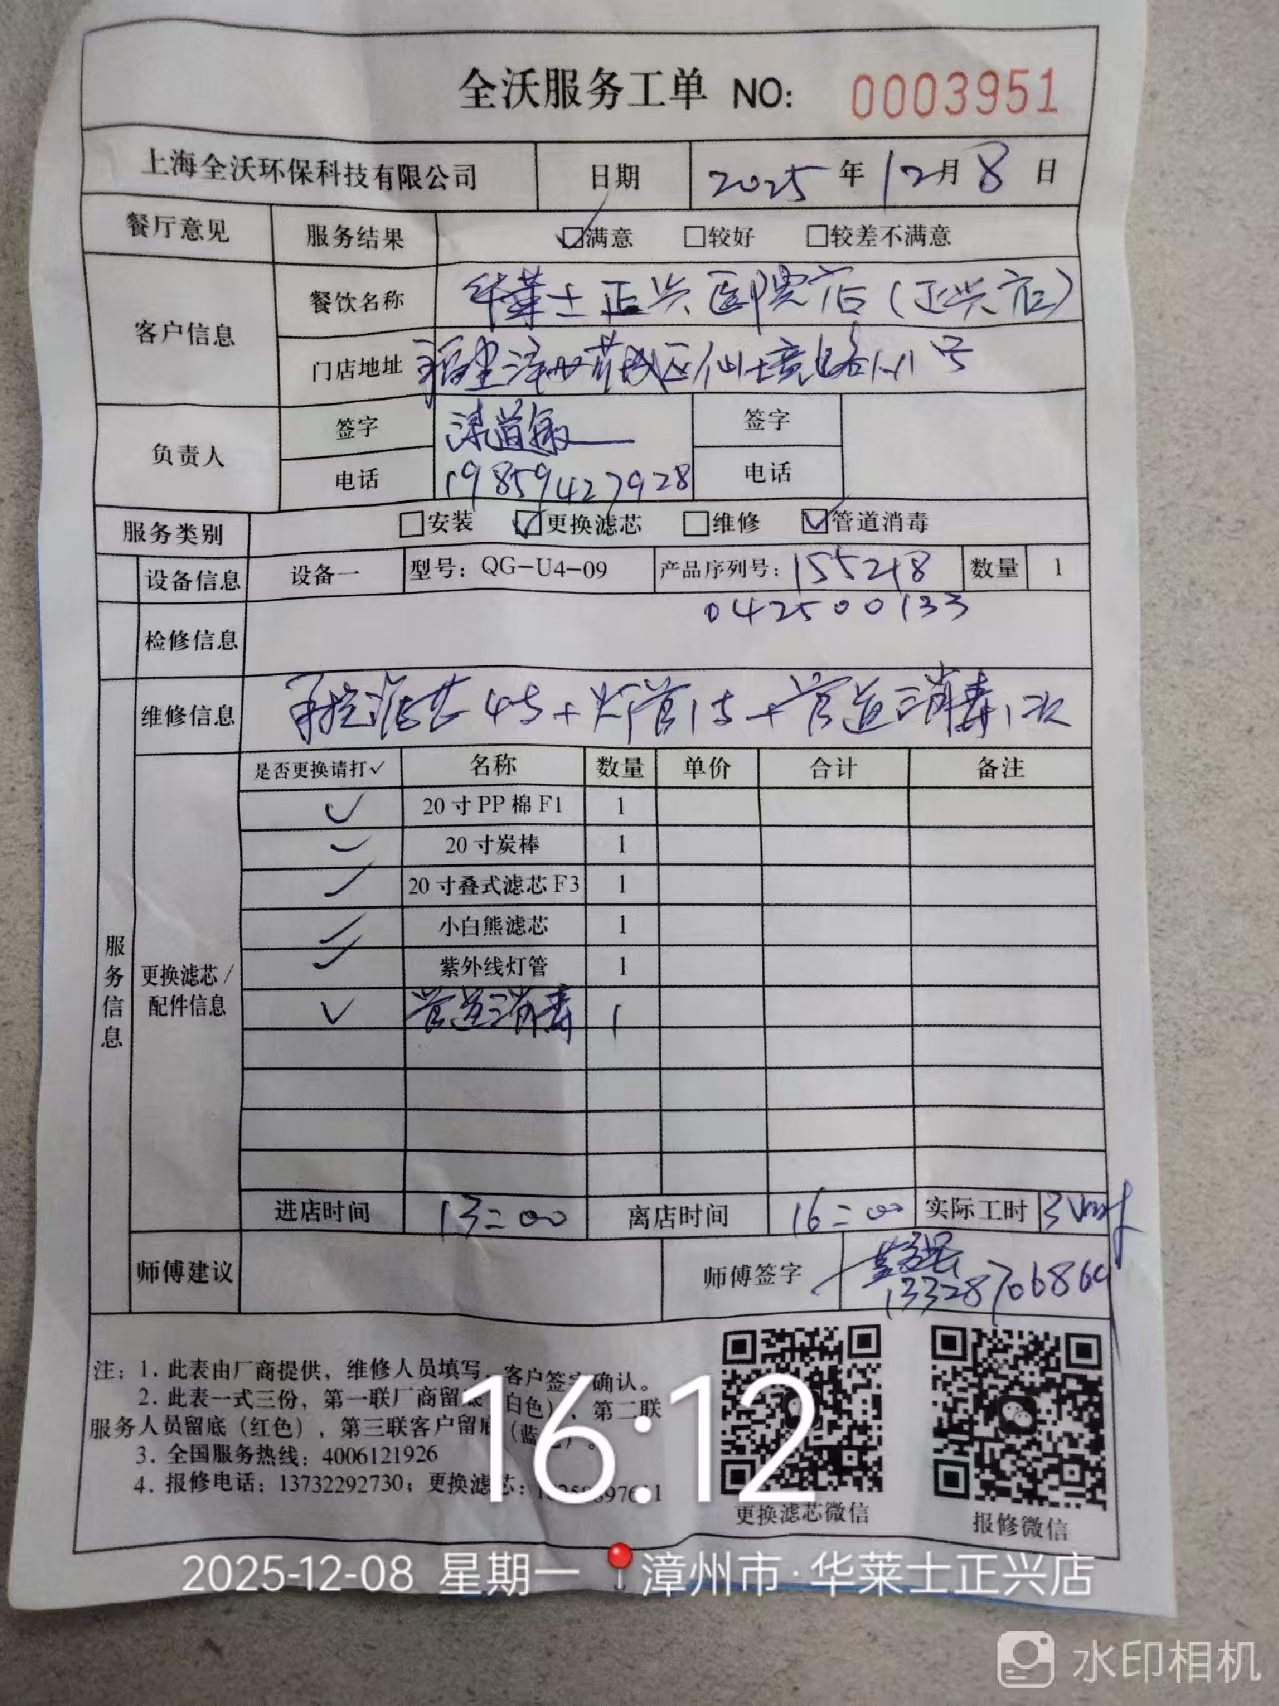 全沃服务工单 NO: 0003951
上海全沃环保科技有限公司 日期 2025年12月8日
餐厅意见 服务结果 ☑满意 □较好 □较差不满意
客户信息 餐饮名称 华莱士正兴医院店(正兴店)
门店地址 福建漳州芗城区仙境路 号
负责人 签字 道 签字
电话 19859427928 电话
服务类别 □安装 ☑更换滤芯 □维修 ☑管道消毒
设备信息 设备一 型号: QG-U4-09 产品序列号: 155218 数量 1
042500133
检修信息
维修信息 滤芯4支+灯管1支+管道消毒1次
是否更换请打✓ 名称 数量 单价 合计 备注
✓ 20寸PP棉F1 1
✓ 20寸炭棒 1
✓ 20寸叠式滤芯F3 1
✓ 小白熊滤芯 1
✓ 紫外线灯管 1
✓ 管道消毒 1
服务信息
更换滤芯/
配件信息
进店时间 13:00 离店时间 16:00 实际工时 3
师傅建议 师傅签字
注: 1. 此表由厂商提供, 维修人员填写, 客户签字确认。
2. 此表一式三份, 第一联厂商留底(白色), 第二联
服务人员留底(红色), 第三联客户留底(蓝色)。
3. 全国服务热线: 4006121926
4. 报修电话: 13732292730; 更换滤芯:
更换滤芯微信 报修微信
16:12
2025-12-08 星期一 漳州市·华莱士正兴店
水印相机